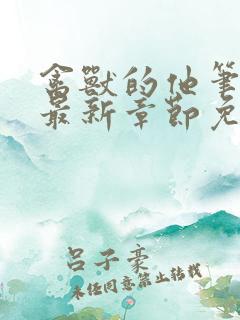 禽獸的他筆
最新章節免
呂子豪
未任同意禁止转载